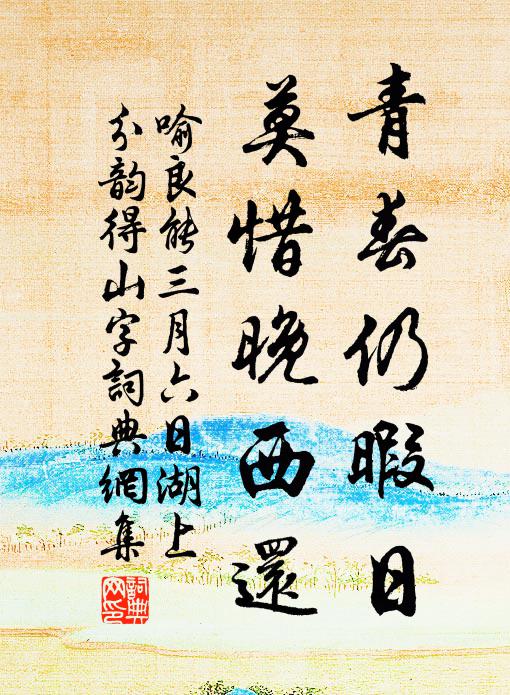 青春仍暇日
莫惜晚西還
喻良能三月六日湖上
分韵得山字詞典網集
詞典網印